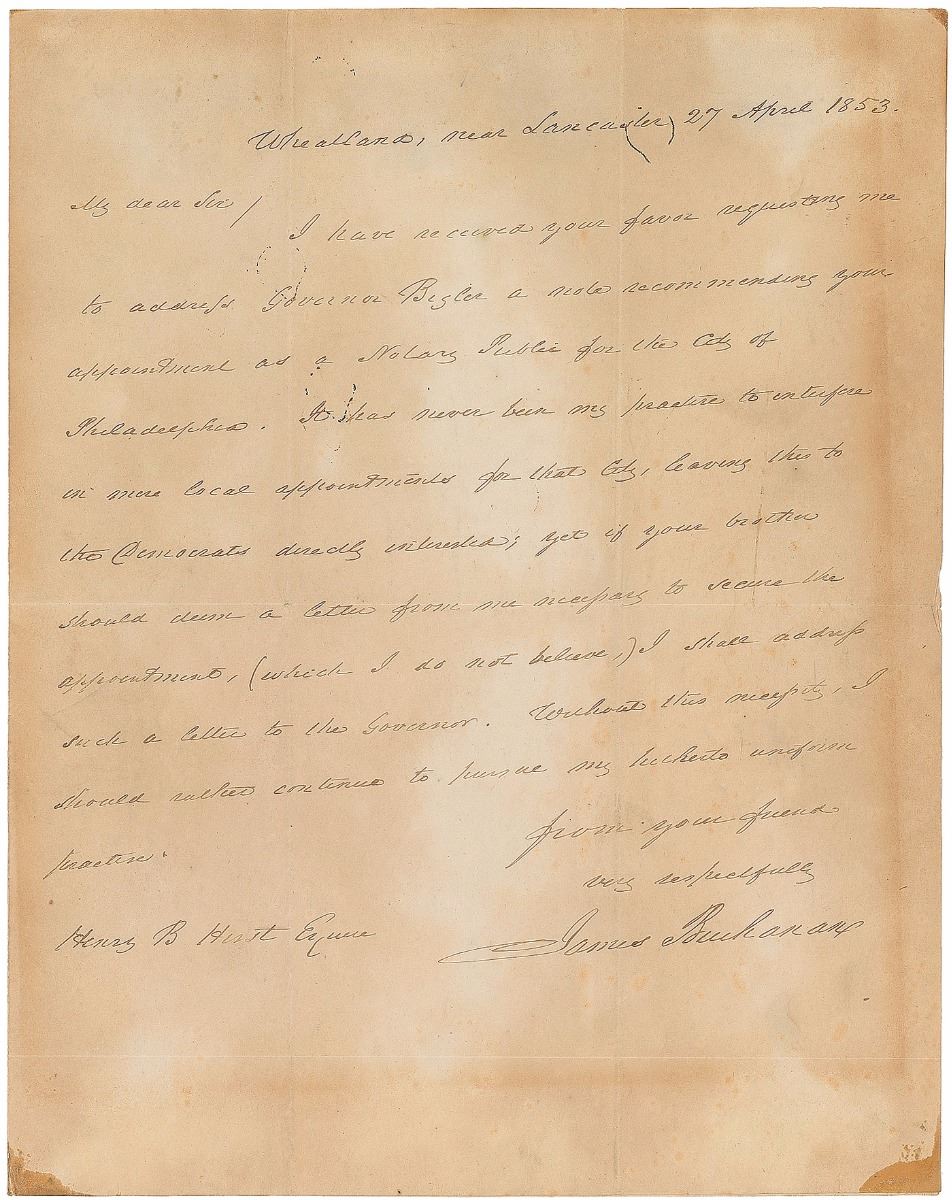 Wheatland, near Lancaster, 27 April 1853.
My dear Sir/
I have received your favor requesting me
to address Governor Bigler a note recommending your
appointment as a Notary Public for the City of
Philadelphia. It has never been my practice to interfere
in mere local appointments for that City, leaving this to
the Democrats directly interested; yet if your brother
should deem a letter from me necessary to secure the
appointment, (which I do not believe,) I shall address
such a letter to the Governor. Without this necessity, I
should rather continue to pursue my hitherto uniform
practise.
from your friend
very respectfully
James Buchanan
Henry B Hirst Esquire